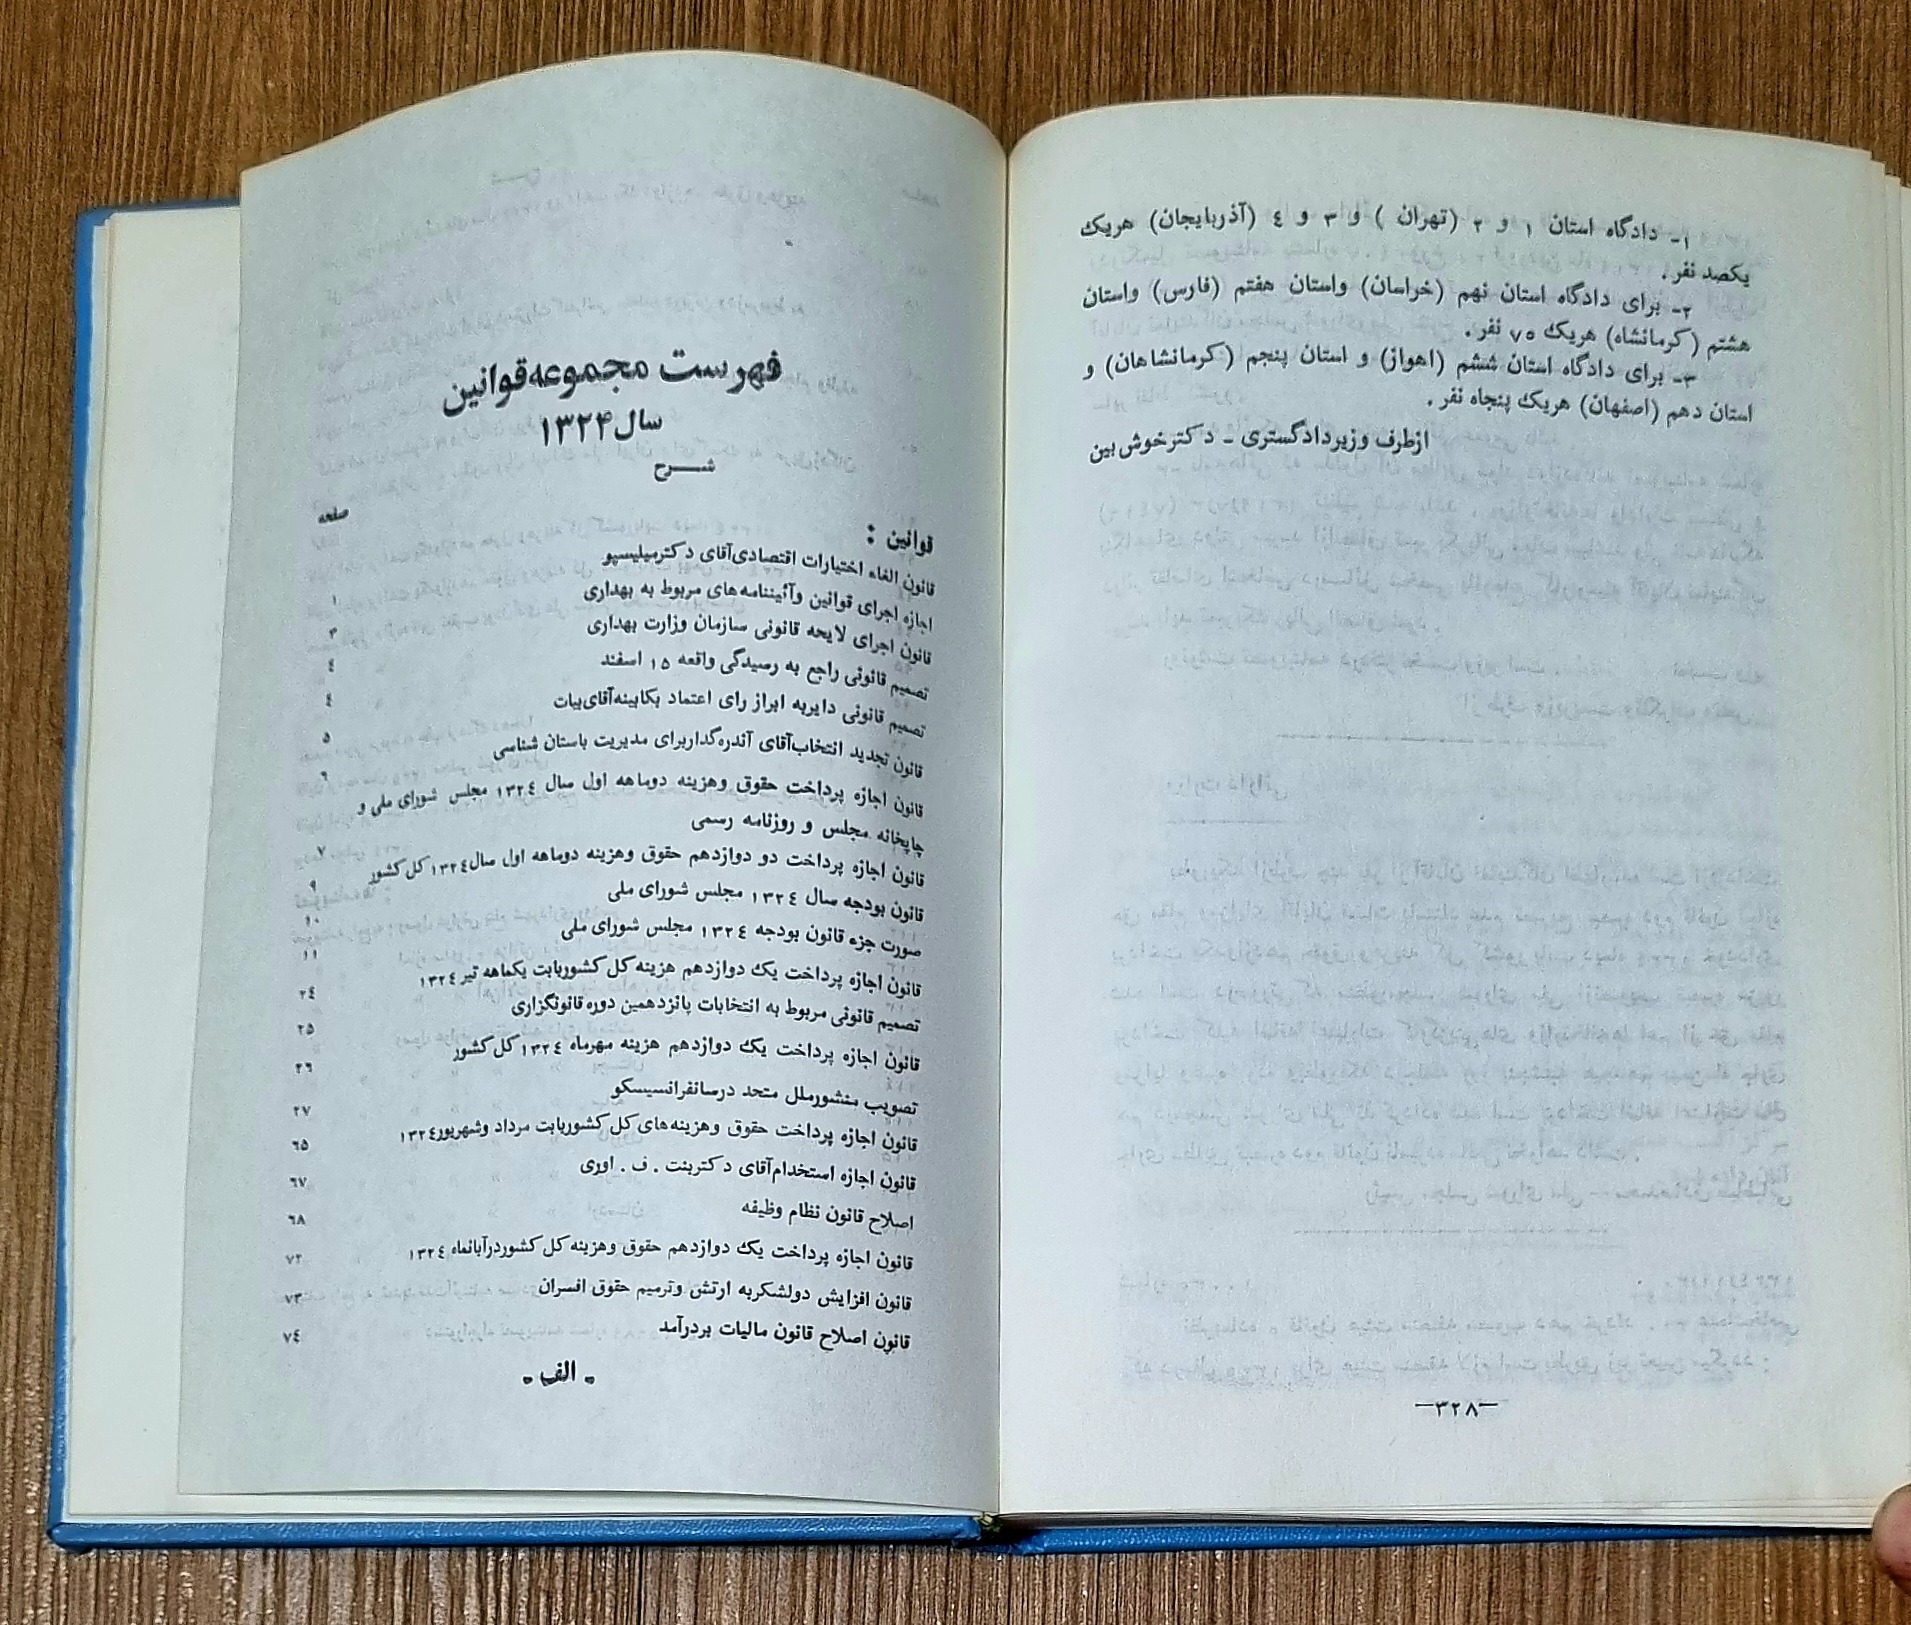 ۱- دادگاه استان ۱ و ۲ (تهران ) و ۳ و ٤ (آذربایجان) هریک
یکصد نفر .
۲- برای دادگاه استان نهم (خراسان) واستان هفتم (فارس) واستان
هشتم (کرمانشاه) هریک ۷۵ نفر .
۳- برای دادگاه استان ششم (اهواز) و استان پنجم (کرمانشاهان) و
استان دهم (اصفهان) هریک پنجاه نفر .
ازطرف وزیردادگستری - دکترخوش بین
—۳۲۸—
فهرست مجموعه قوانین
سال ۱۳۲۴
شرح
صفحه
قوانین :
قانون الغاء اختیارات اقتصادی آقای دکترمیلیسپو ۱
اجازه اجرای قوانین وآئیننامه های مربوط به بهداری ۳
قانون اجرای لایحه قانونی سازمان وزارت بهداری ٤
تصمیم قانونی راجع به رسیدگی واقعه ۱۵ اسفند ٤
تصمیم قانونی دایربه ابراز رای اعتماد بکابینه آقای بیات ۵
قانون تجدید انتخاب آقای آندره گداربرای مدیریت باستان شناسی ۶
قانون اجازه پرداخت حقوق وهزینه دوماهه اول سال ۱۳۲٤ مجلس شورای ملی و
چاپخانه مجلس و روزنامه رسمی ۷
قانون اجازه پرداخت دو دوازدهم حقوق وهزینه دوماهه اول سال ۱۳۲٤ کل کشور ۹
قانون بودجه سال ۱۳۲٤ مجلس شورای ملی ۱۰
صورت جزء قانون بودجه ۱۳۲٤ مجلس شورای ملی ۱۱
قانون اجازه پرداخت یک دوازدهم هزینه کل کشوربابت یکماهه تیر ۱۳۲٤ ۲٤
تصمیم قانونی مربوط به انتخابات پانزدهمین دوره قانونگزاری ۲۵
قانون اجازه پرداخت یک دوازدهم هزینه مهرماه ۱۳۲٤ کل کشور ۲۶
تصویب منشورملل متحد درسانفرانسیسکو ۲۷
قانون اجازه پرداخت حقوق وهزینه های کل کشوربابت مرداد وشهریور۱۳۲٤ ۶۵
قانون اجازه استخدام آقای دکتربنت . ف . اوری ۶۷
اصلاح قانون نظام وظیفه ۶۸
قانون اجازه پرداخت یک دوازدهم حقوق وهزینه کل کشوردرآبانماه ۱۳۲٤ ۷۲
قانون افزایش دولشکربه ارتش وترمیم حقوق افسران ۷۳
قانون اصلاح قانون مالیات بردرآمد ۷٤
. الف .